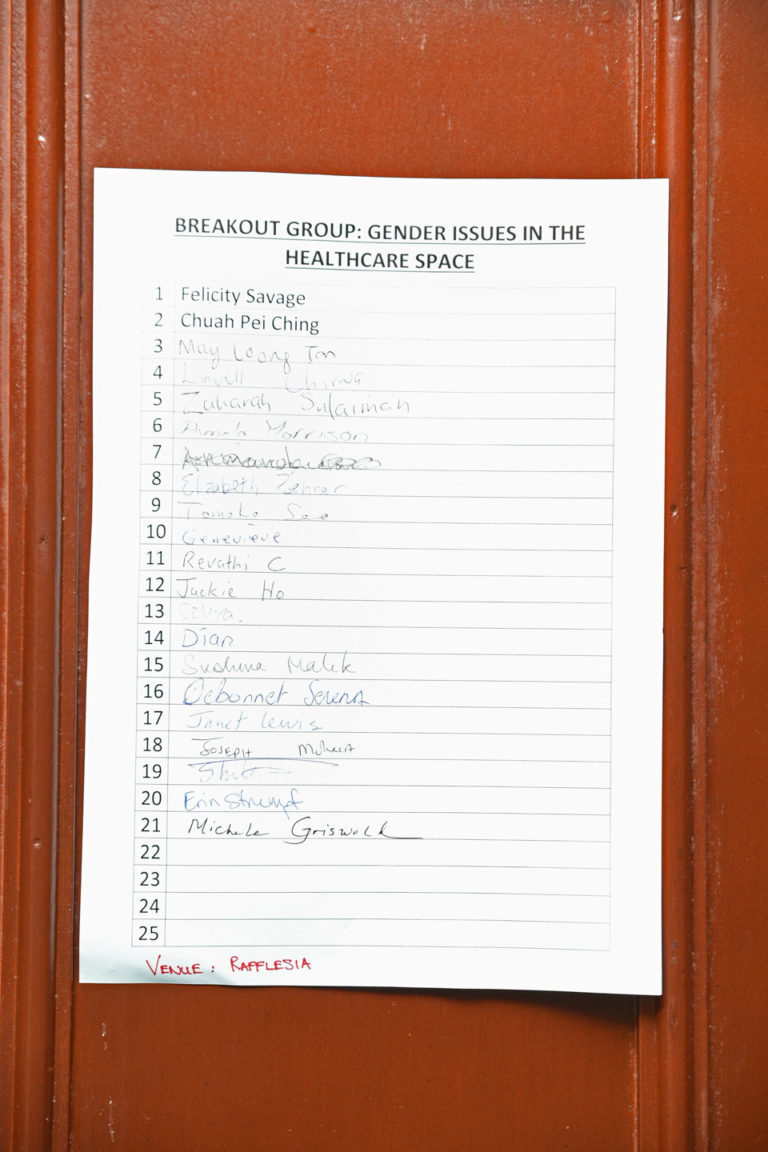 BREAKOUT GROUP: GENDER ISSUES IN THE
HEALTHCARE SPACE
1 Felicity Savage
2 Chuah Pei Ching
3 May Loong Tan
4
5 Zaharah Sulaiman
6 Morrison
7
8 Elizabeth
9 Tomoko
10 Genevieve
11 Revathi C
12 Jackie Ho
13
14 Dian
15 Malik
16
17 Janet Lewis
18 JOSEPH
19
20 Erin Strumpf
21 Michele Griswold
22
23
24
25
VENUE : RAFFLESIA